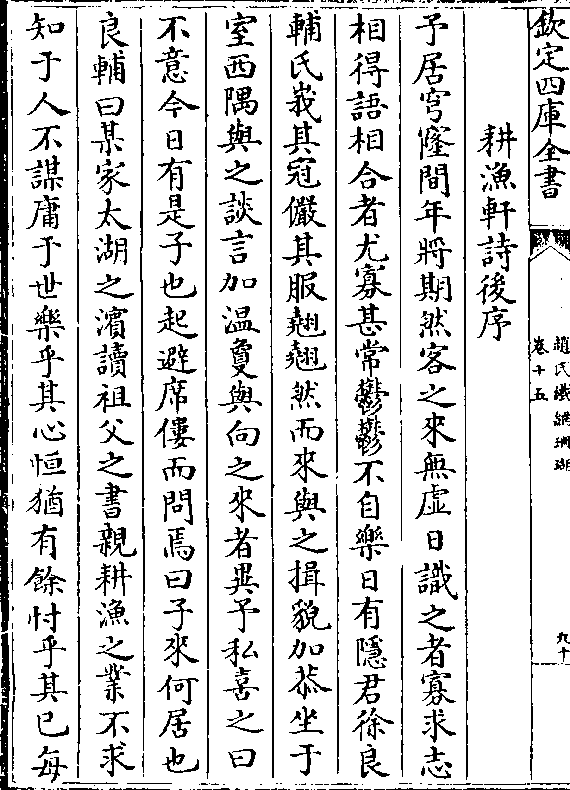 欽定四庫全書
趙氏鐵網珊瑚
卷十五
九十
耕漁軒詩後序
予居穹窿間年將期然客之來無虛日識之者寡求志
相得語相合者尤寡甚常鬱鬱不自樂日有隱君徐良
輔氏峩其冠儼其服翹翹然而來與之揖貌加恭坐于
室西隅與之談言加温敻與向之來者異予私喜之曰
不意今日有是子也起避席僂而問焉曰子來何居也
良輔曰某家太湖之濵讀祖父之書親耕漁之業不求
知于人不謀庸于世樂乎其心恒猶有餘忖乎其已每